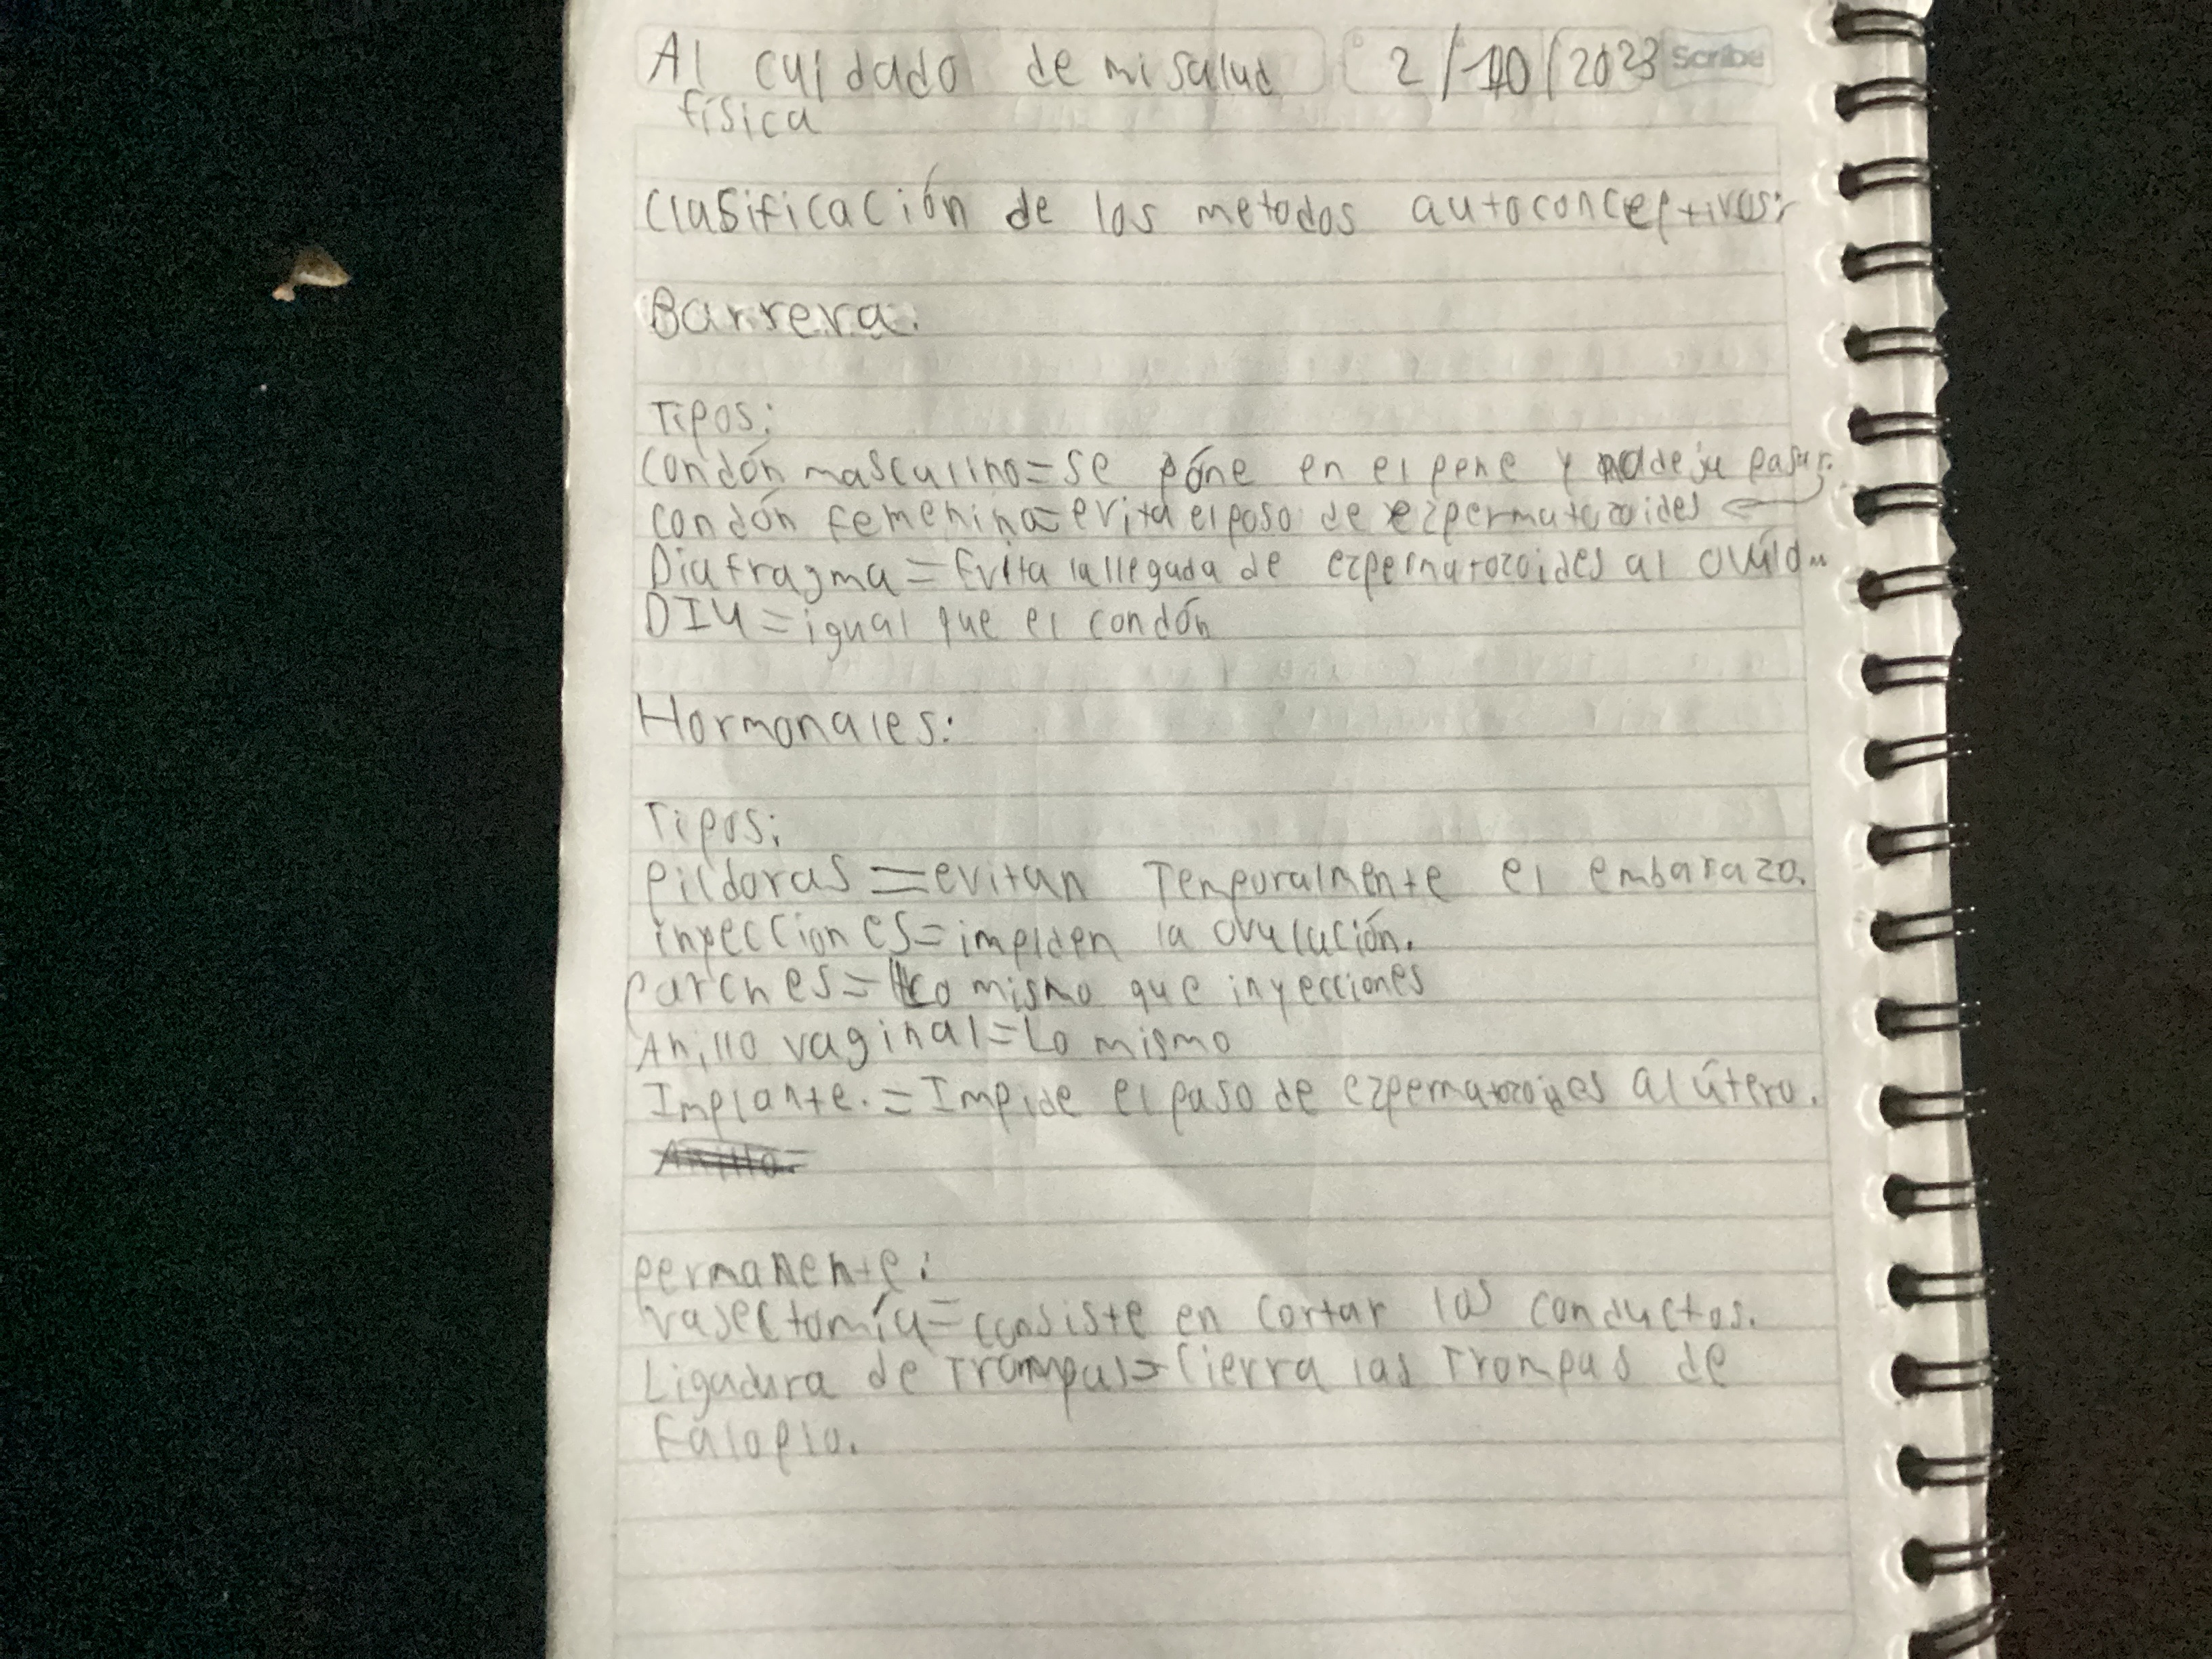 Al cuidado de mi salud 2/10/2023 Scribe
física
Clasificación de los metodos autoconceptivos:
Barrera:
Tipos:
Condón masculino=se póne en el pene y no deja pasar.
condón femenino=evita el paso de ezpermatozoides
Diafragma=Evita la llegada de ezpermatozoides al ovúlo
DIU=igual que el condón
Hormonales:
Tipos:
Pildoras=evitan Temporalmente el embarazo.
inyecciones=impiden la ovulación.
Parches=Lo mismo que inyecciones
Anillo vaginal=Lo mismo
Implante.=Impide el paso de ezpermatozoides al útero.
Anillo.
permanente:
vasectomía=consiste en cortar los conductos.
Ligadura de Trompas=Cierra las Trompas de
Falopio.